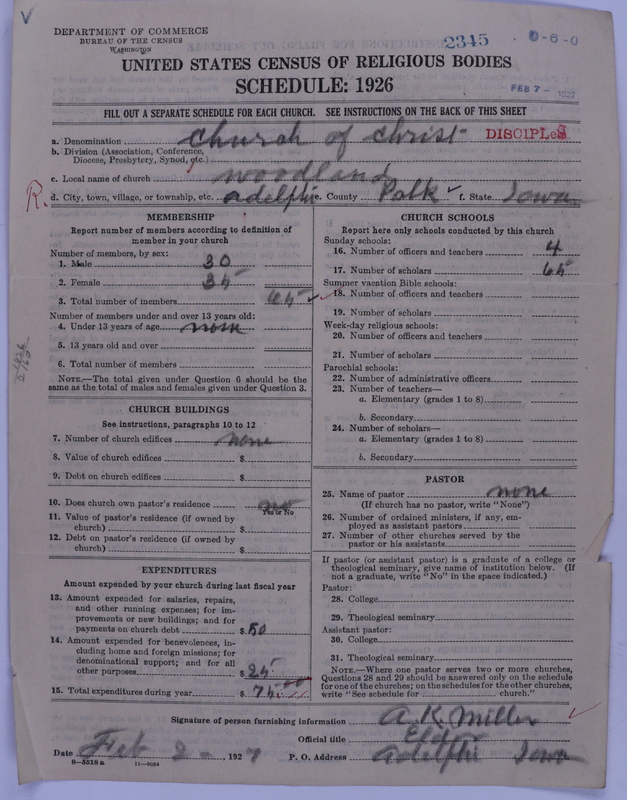 DEPARTMENT OF COMMERCE
BUREAU OF THE CENSUS
WASHINGTON
2345
0-6-0
UNITED STATES CENSUS OF RELIGIOUS BODIES
SCHEDULE: 1926
FEB 7 - 1927
FILL OUT A SEPARATE SCHEDULE FOR EACH CHURCH. SEE INSTRUCTIONS ON THE BACK OF THIS SHEET
a. Denomination church of christ DISCIPLES
b. Division (Association, Conference,
Diocese, Presbytery, Synod, etc.)
c. Local name of church woodland
R.
d. City, town, village, or township, etc. adelphi e. County Polk f. State Iowa
MEMBERSHIP
Report number of members according to definition of
member in your church
Number of members, by sex:
1. Male 30
2. Female 35
3. Total number of members 65
Number of members under and over 13 years old:
4. Under 13 years of age none
5. 13 years old and over
6. Total number of members
NOTE.—The total given under Question 6 should be the
same as the total of males and females given under Question 3.
CHURCH BUILDINGS
See instructions, paragraphs 10 to 12
7. Number of church edifices none
8. Value of church edifices $
9. Debt on church edifices $
10. Does church own pastor's residence no
Yes or No
11. Value of pastor's residence (if owned by
church) $
12. Debt on pastor's residence (if owned by
church) $
EXPENDITURES
Amount expended by your church during last fiscal year
13. Amount expended for salaries, repairs,
and other running expenses; for im-
provements or new buildings; and for
payments on church debt $50
14. Amount expended for benevolences, in-
cluding home and foreign missions; for
denominational support; and for all
other purposes $25
15. Total expenditures during year $75.00
CHURCH SCHOOLS
Report here only schools conducted by this church
Sunday schools:
16. Number of officers and teachers 4
17. Number of scholars 65
Summer vacation Bible schools:
18. Number of officers and teachers
19. Number of scholars
Week-day religious schools:
20. Number of officers and teachers
21. Number of scholars
Parochial schools:
22. Number of administrative officers
23. Number of teachers—
a. Elementary (grades 1 to 8)
b. Secondary
24. Number of scholars—
a. Elementary (grades 1 to 8)
b. Secondary
PASTOR
25. Name of pastor none
(If church has no pastor, write "None")
26. Number of ordained ministers, if any, em-
ployed as assistant pastors
27. Number of other churches served by the
pastor or his assistants
If pastor (or assistant pastor) is a graduate of a college or
theological seminary, give name of institution below. (If
not a graduate, write "No" in the space indicated.)
Pastor:
28. College
29. Theological seminary
Assistant pastor:
30. College
31. Theological seminary
NOTE.—Where one pastor serves two or more churches,
Questions 28 and 29 should be answered only on the schedule
for one of the churches; on the schedules for the other churches,
write "See schedule for church."
Signature of person furnishing information A. K. Miller
Official title Elder
Date Feb 2 - 1927 P. O. Address adelphi Iowa
8-5518a 11-9034